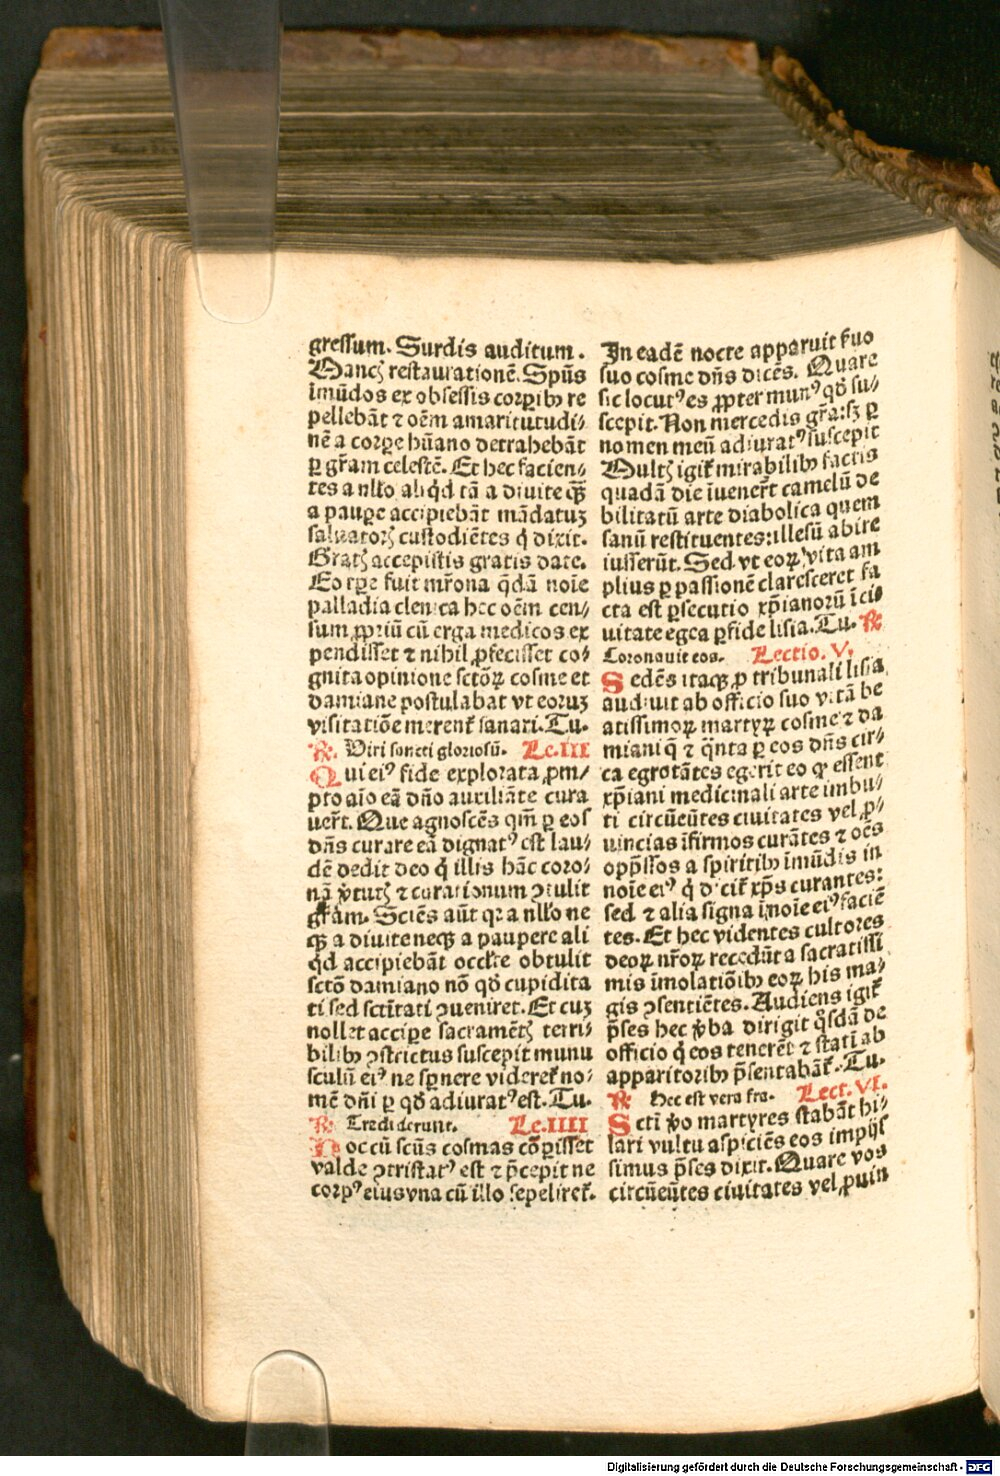 gressum. Surdis auditum.
Mancꝫ restaurationē. Spūs
imūdos ex obsessis corꝑibꝰ re
pellebāt ⁊ oēm amaritutudi⸗
nē a corꝑe hūano detrahebāt
ꝑ gr̄am celestē. Et hec facien⸗
tes a nllo aliq̇d tā a diuite qꝫ̄
a pauꝑe accipiebāt mādatuꝫ
saluatorꝭ custodiētes q̇ dixit.
Gratꝭ accepistis gratis date.
Eo tꝑe fuit mr̄ona q̄dā noīe
palladia clerica hec oēm cen⸗
sum ꝓpriū cū erga medicos ex
pendisset ⁊ nihil ꝓfecisset co⸗
gnita opinione sctōꝝ cosme et
damiane postulabat vt eoruꝫ
visitatiōe merent᷑ sanari. Tu.
℟. Viri sancti gloriosū. Lc.III
Qui eiꝰ fide explorata ꝓm⸗
pto aīo eā dño auxiliāte cura
uer̄t. Que agnoscēs qm̄ ꝑ eos
dñs curare eā dignatꝰ est lau⸗
dē dedit deo q̇ illis hāc coro⸗
nā v̇tutꝭ ⁊ curationum ꝯtulit
gr̄am. Sciēs aūt qꝛ a nllo ne
qꝫ a diuite neqꝫ a paupere ali
q̇d accipiebāt occlte obtulit
sctō damiano nō qḋ cupidita
ti sed sctītati ꝯueniret. Et cuꝫ
nollet acciꝑe sacramētꝭ terri⸗
bilibꝰ ꝯstrictus suscepit munu
sculū eiꝰ ne sꝑnere videret᷑ no⸗
mē dñi ꝑ qḋ adiuratꝰ est. Tu.
℟. Tradiderunt. Lc.IIII
Hoc cū scūs cosmas cōꝑisset
valde ꝯtristatꝰ est ⁊ p̄cepit ne
corpꝰ eius vna cū illo sepeliret᷑.
In eadē nocte apparuit ẜuo
suo cosme dñs dicēs. Quare
sic locutꝰ es ꝓpter munꝰ qḋ su⸗
scepit. Non mercedis gr̄a: sꝫ ꝑ
nomen meū adiuratꝰ suscepit
Multꝭ igit᷑ mirabilibꝰ factis
quadā die īuener̄t camelū de
bilitatū arte diabolica quem
sanū restituentes: illesū abire
iusserūt. Sed vt eoꝝ vita am
plius ꝑ passionē claresceret fa
cta est ꝑsecutio xp̄ianorū ī ci⸗
uitate egea ꝑfide lisia. Tu. ℟
Coronauit eos. Lectio. V.
Sedēs itaqꝫ ꝓ tribunali lisia
audiuit ab officio suo vitā be
atissimoꝝ martyꝝ cosme ⁊ da
miani q̄ ⁊ q̄nta ꝑ eos dñs cir⸗
ca egrotātes egerit eo ꝙ essent
xp̄iani medicinali arte imbu⸗
ti circūeūtes ciuitates vel ꝓ⸗
uincias īfirmos curātes ⁊ oēs
opp̄ssos a spiritibꝰ īmūdis in
noīe eiꝰ q̇ dicit᷑ xp̄s curantes:
sed ⁊ alia signa ī noīe eiꝰ faciē
tes. Et hec videntes cultores
deoꝝ nr̄oꝝ recedūt a sacratissi
mis īmolatiōibꝰ eoꝝ his ma⸗
gis ꝯsentiētes. Audiens igit᷑
p̄ses hec v̇ba dirigit q̊sdā de
officio q̇ eos tenerēt ⁊ statī ab
apparitoribꝰ p̄sentabāt᷑. Tu.
℟ Hec est vera fra. Lect. VI.
Sctī v̊o martyres stabāt hi⸗
lari vultu aspiciēs eos impijs
simus p̄ses dixit. Quare vos
circūeūtes ciuitates vel ꝓuin
Digitalisierung gefördert durch die Deutsche Forschungsgemeinschaft - DFG